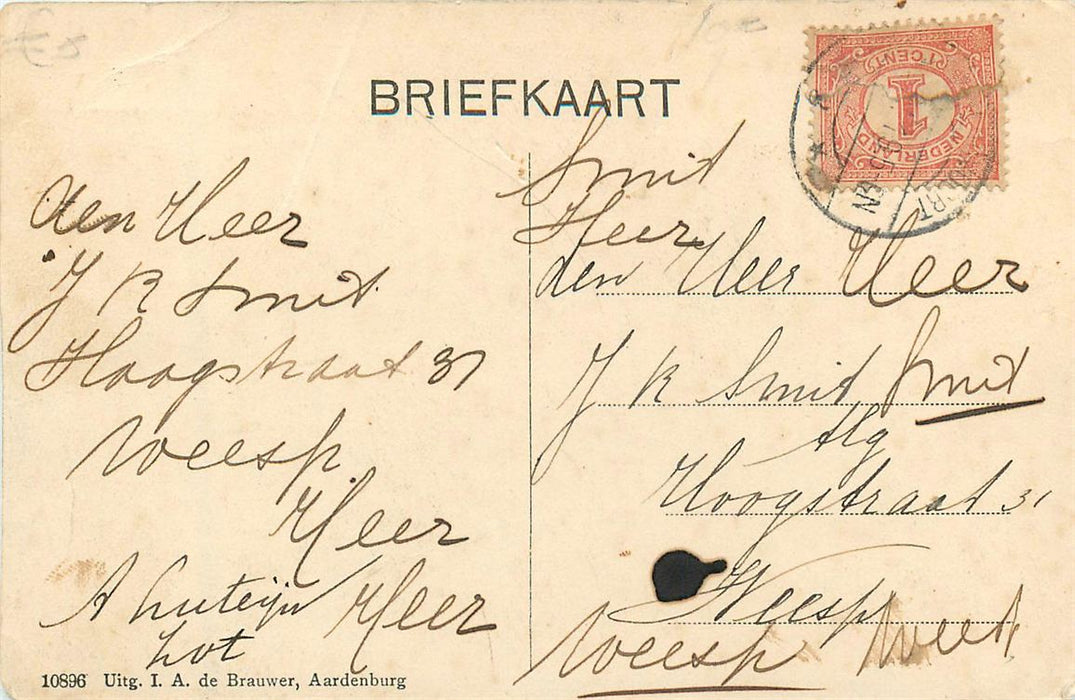 BRIEFKAART
1 CENT
1
NEDERLAND
den Heer
J K Smit
Hoogstraat 31
Weesp
Heer
Heer
A
zot
10896 Uitg. I. A. de Brauwer, Aardenburg
Smit
Heer
den Heer Heer
J K Smit Smit
Alg
Hoogstraat 31
Weesp
Weesp